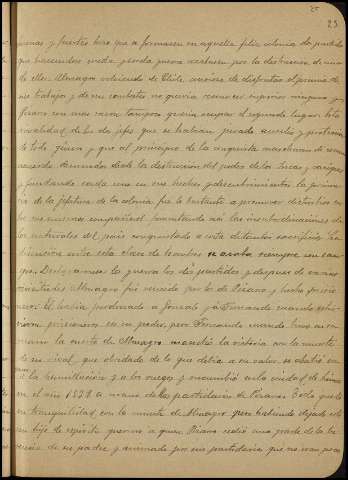 25
y fuertes hizo que se formasen en aquella feliz colonia dos partidos
que haciendose cruda guerra acabasen por la destruccion de uno
de ellos. Almagro volviendo de Chile ansioso de disfrutar el premio de
sus trabajos y de sus combates no queria reconocer superior ninguno y
Pizarro con mas razon tampoco queria ocupar el segundo lugar. Esta
rivalidad de los dos jefes que se habian jurado auxilio y proteccion
de todo, y que al principio de la conquista marcharon de comun
acuerdo derrumbando la destruccion del poder de los Incas y caciques
y fundando cada uno en sus hechos y descubrimientos la prima
cia de la jefatura de la colonia fue lo bastante a promover disturbios en
los mismos compañeros, fomentando asi las insubordinaciones de
los naturales del pais conquistado a costa de tantos sacrificios. La
disencion entre esta clase de hombres se acaba siempre con san
gre. Declararonse la guerra los dos partidos y despues de varias
Almagro fué vencido por los de Pizarro y hecho prisio
nero. El habia perdonado a Gonzalo y a Fernando cuando estu
vieron prisioneros en su poder, pero Fernando cuando tuvo en sus
manos la suerte de Almagro manchó la victoria con la muerte
de su rival, que olvidado de lo que debia a su valor se abatió
a la humillacion y a los ruegos y sucumbió en la ciudad de
en el año 1538 a manos de los partidarios de Pizarro. Todo quedó
en tranquilidad con la muerte de Almagro, pero habiendo dejado este
un hijo de espiritu guerrero a quien Pizarro cedió una parte de la he
rencia de su padre y animado por sus partidarios que no eran pocos